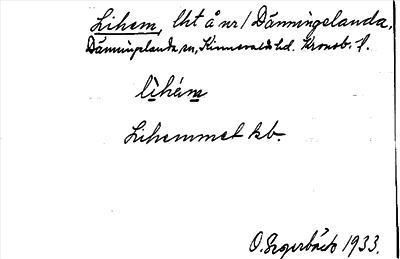 Lihem, lht å nr 1 Dänningelanda,
Dänningelanda sn, Kinnevalds hd. Kronob. l.
lìhém
Lihemmet kb.
O. Segerbäck 1933.